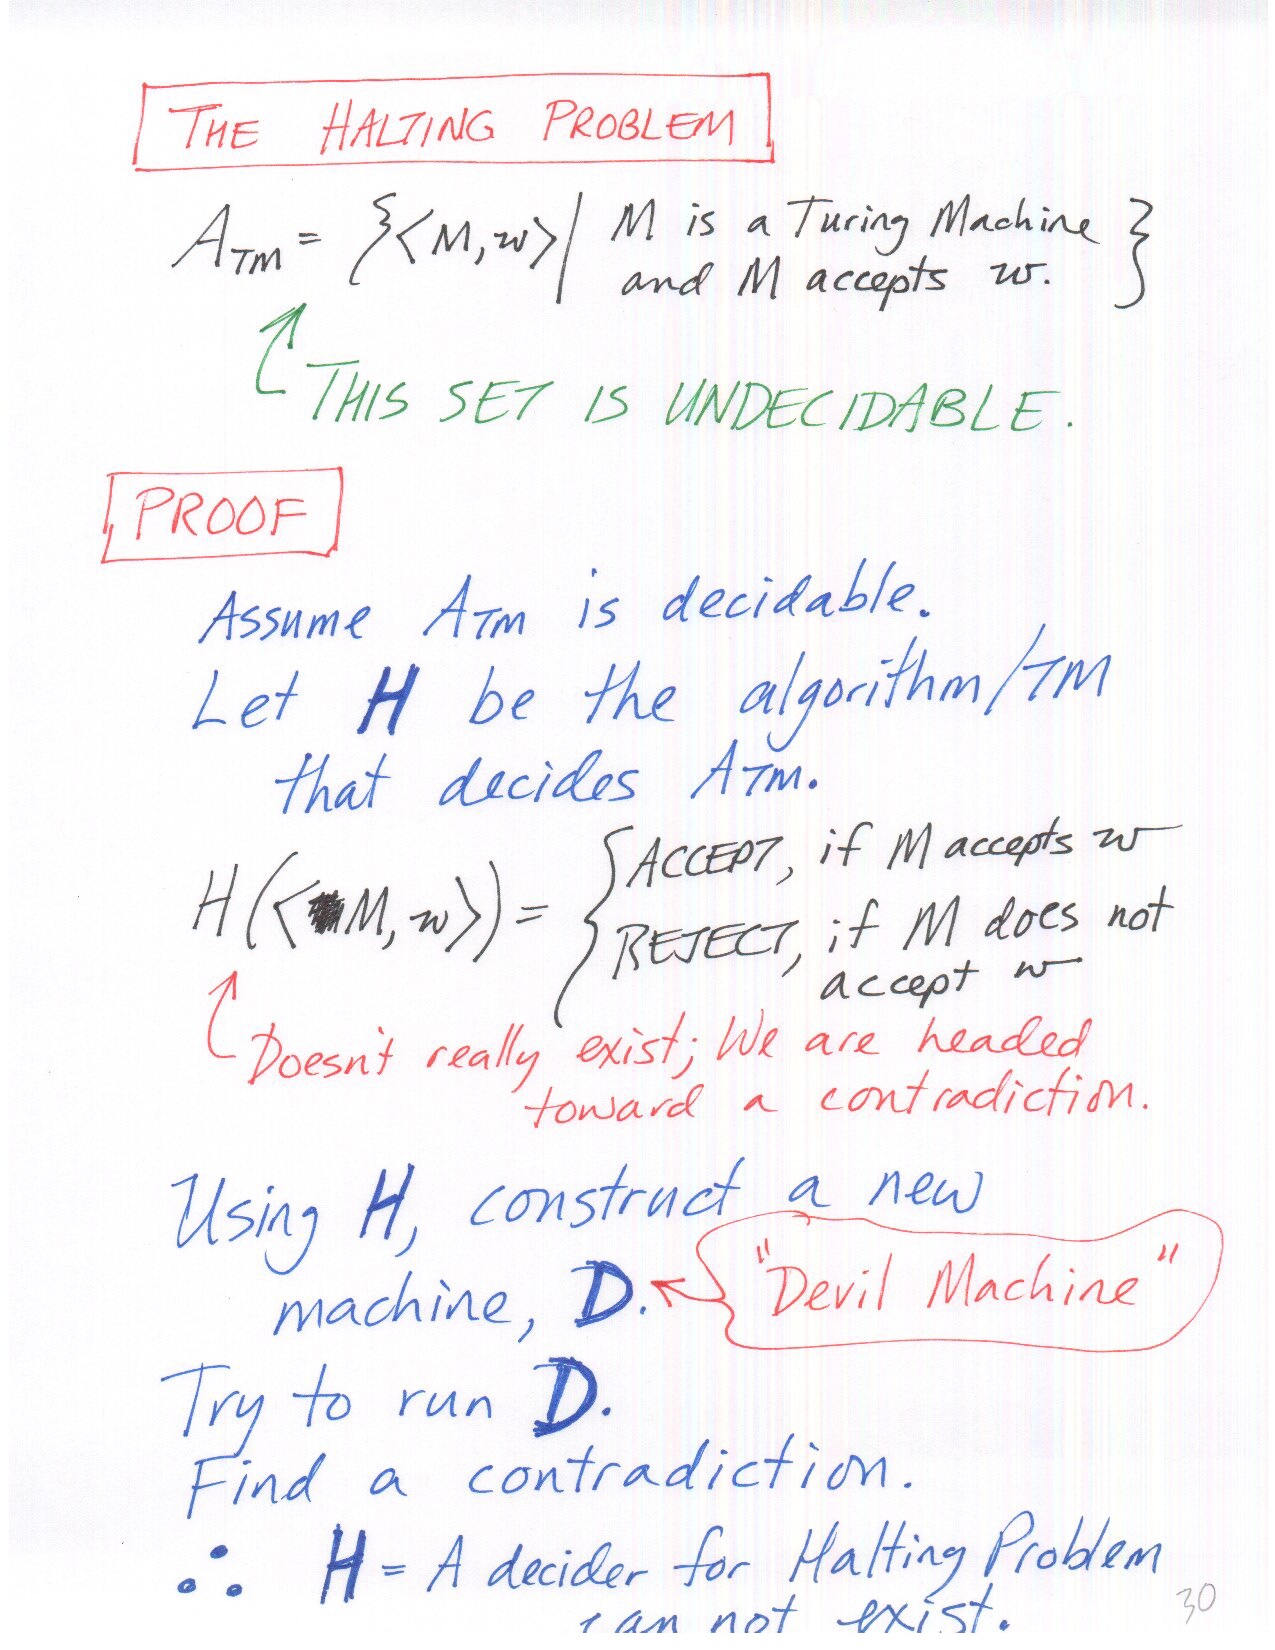 THE HALTING PROBLEM
A_TM = {⟨M, w⟩ | M is a Turing Machine
and M accepts w. }
THIS SET IS UNDECIDABLE.
PROOF
Assume A_TM is decidable.
Let H be the algorithm/TM
that decides A_TM.
H(⟨M, w⟩) = { ACCEPT, if M accepts w
REJECT, if M does not
accept w
Doesn't really exist; We are headed
toward a contradiction.
Using H, construct a new
machine, D. "Devil Machine"
Try to run D.
Find a contradiction.
∴ H = A decider for Halting Problem
can not exist.
30